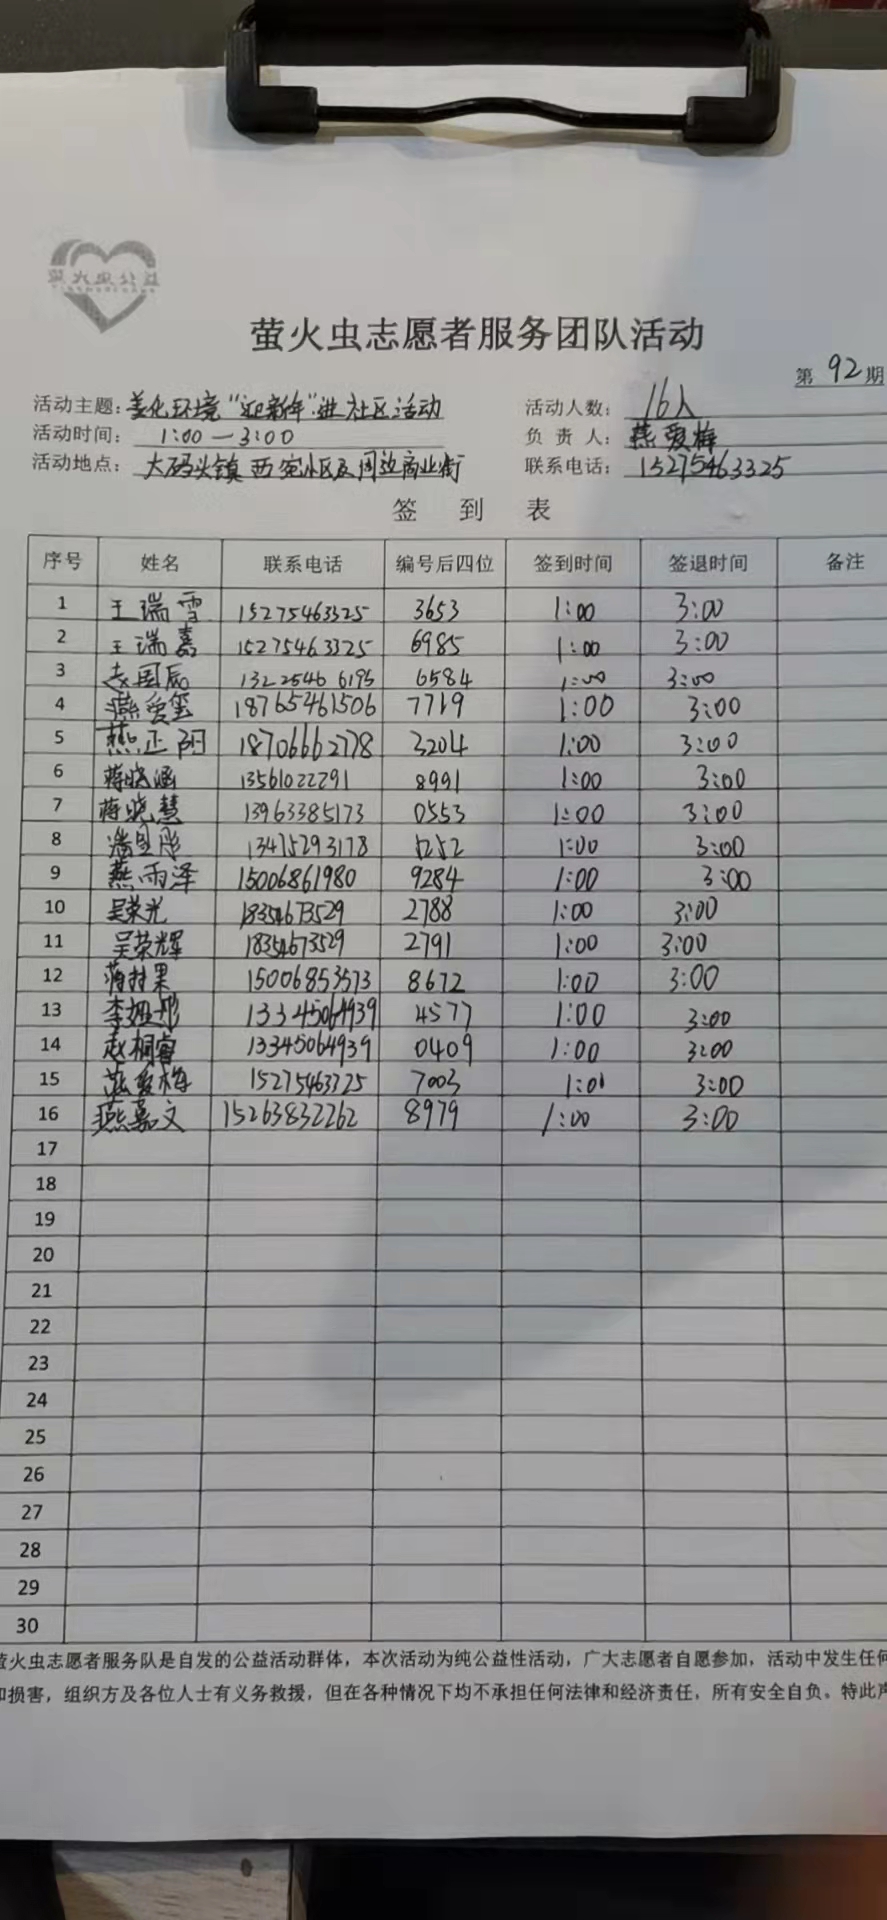 萤火虫公益
萤火虫志愿者服务团队活动
第 92 期
活动主题：美化环境"迎新年"进社区活动 活动人数：16人
活动时间：1:00—3:00 负责人：燕爱梅
活动地点：大码头镇西苑小区及周边商业街 联系电话：15275463325
签到表
序号 姓名 联系电话 编号后四位 签到时间 签退时间 备注
1 王瑞雪 15275463325 3653 1:00 3:00
2 王瑞嘉 15275463325 6985 1:00 3:00
3 赵国辰 13225466195 6584 1:00 3:00
4 燕爱玺 18765461506 7719 1:00 3:00
5 燕正阳 18706662778 3204 1:00 3:00
6 蒋晓涵 13561022291 8991 1:00 3:00
7 蒋晓慧 13963385173 0553 1:00 3:00
8 13415293178 5252 1:00 3:00
9 燕雨泽 15006861980 9284 1:00 3:00
10 吴荣光 18354673529 2788 1:00 3:00
11 吴荣辉 18354673529 2791 1:00 3:00
12 15006853573 8672 1:00 3:00
13 13345064939 4577 1:00 3:00
14 赵桐睿 13345064939 0409 1:00 3:00
15 燕爱梅 15275463325 7003 1:01 3:00
16 燕嘉文 15263832262 8979 1:00 3:00
17
18
19
20
21
22
23
24
25
26
27
28
29
30
萤火虫志愿者服务队是自发的公益活动群体，本次活动为纯公益性活动，广大志愿者自愿参加，活动中发生任何
和损害，组织方及各位人士有义务救援，但在各种情况下均不承担任何法律和经济责任，所有安全自负。特此声